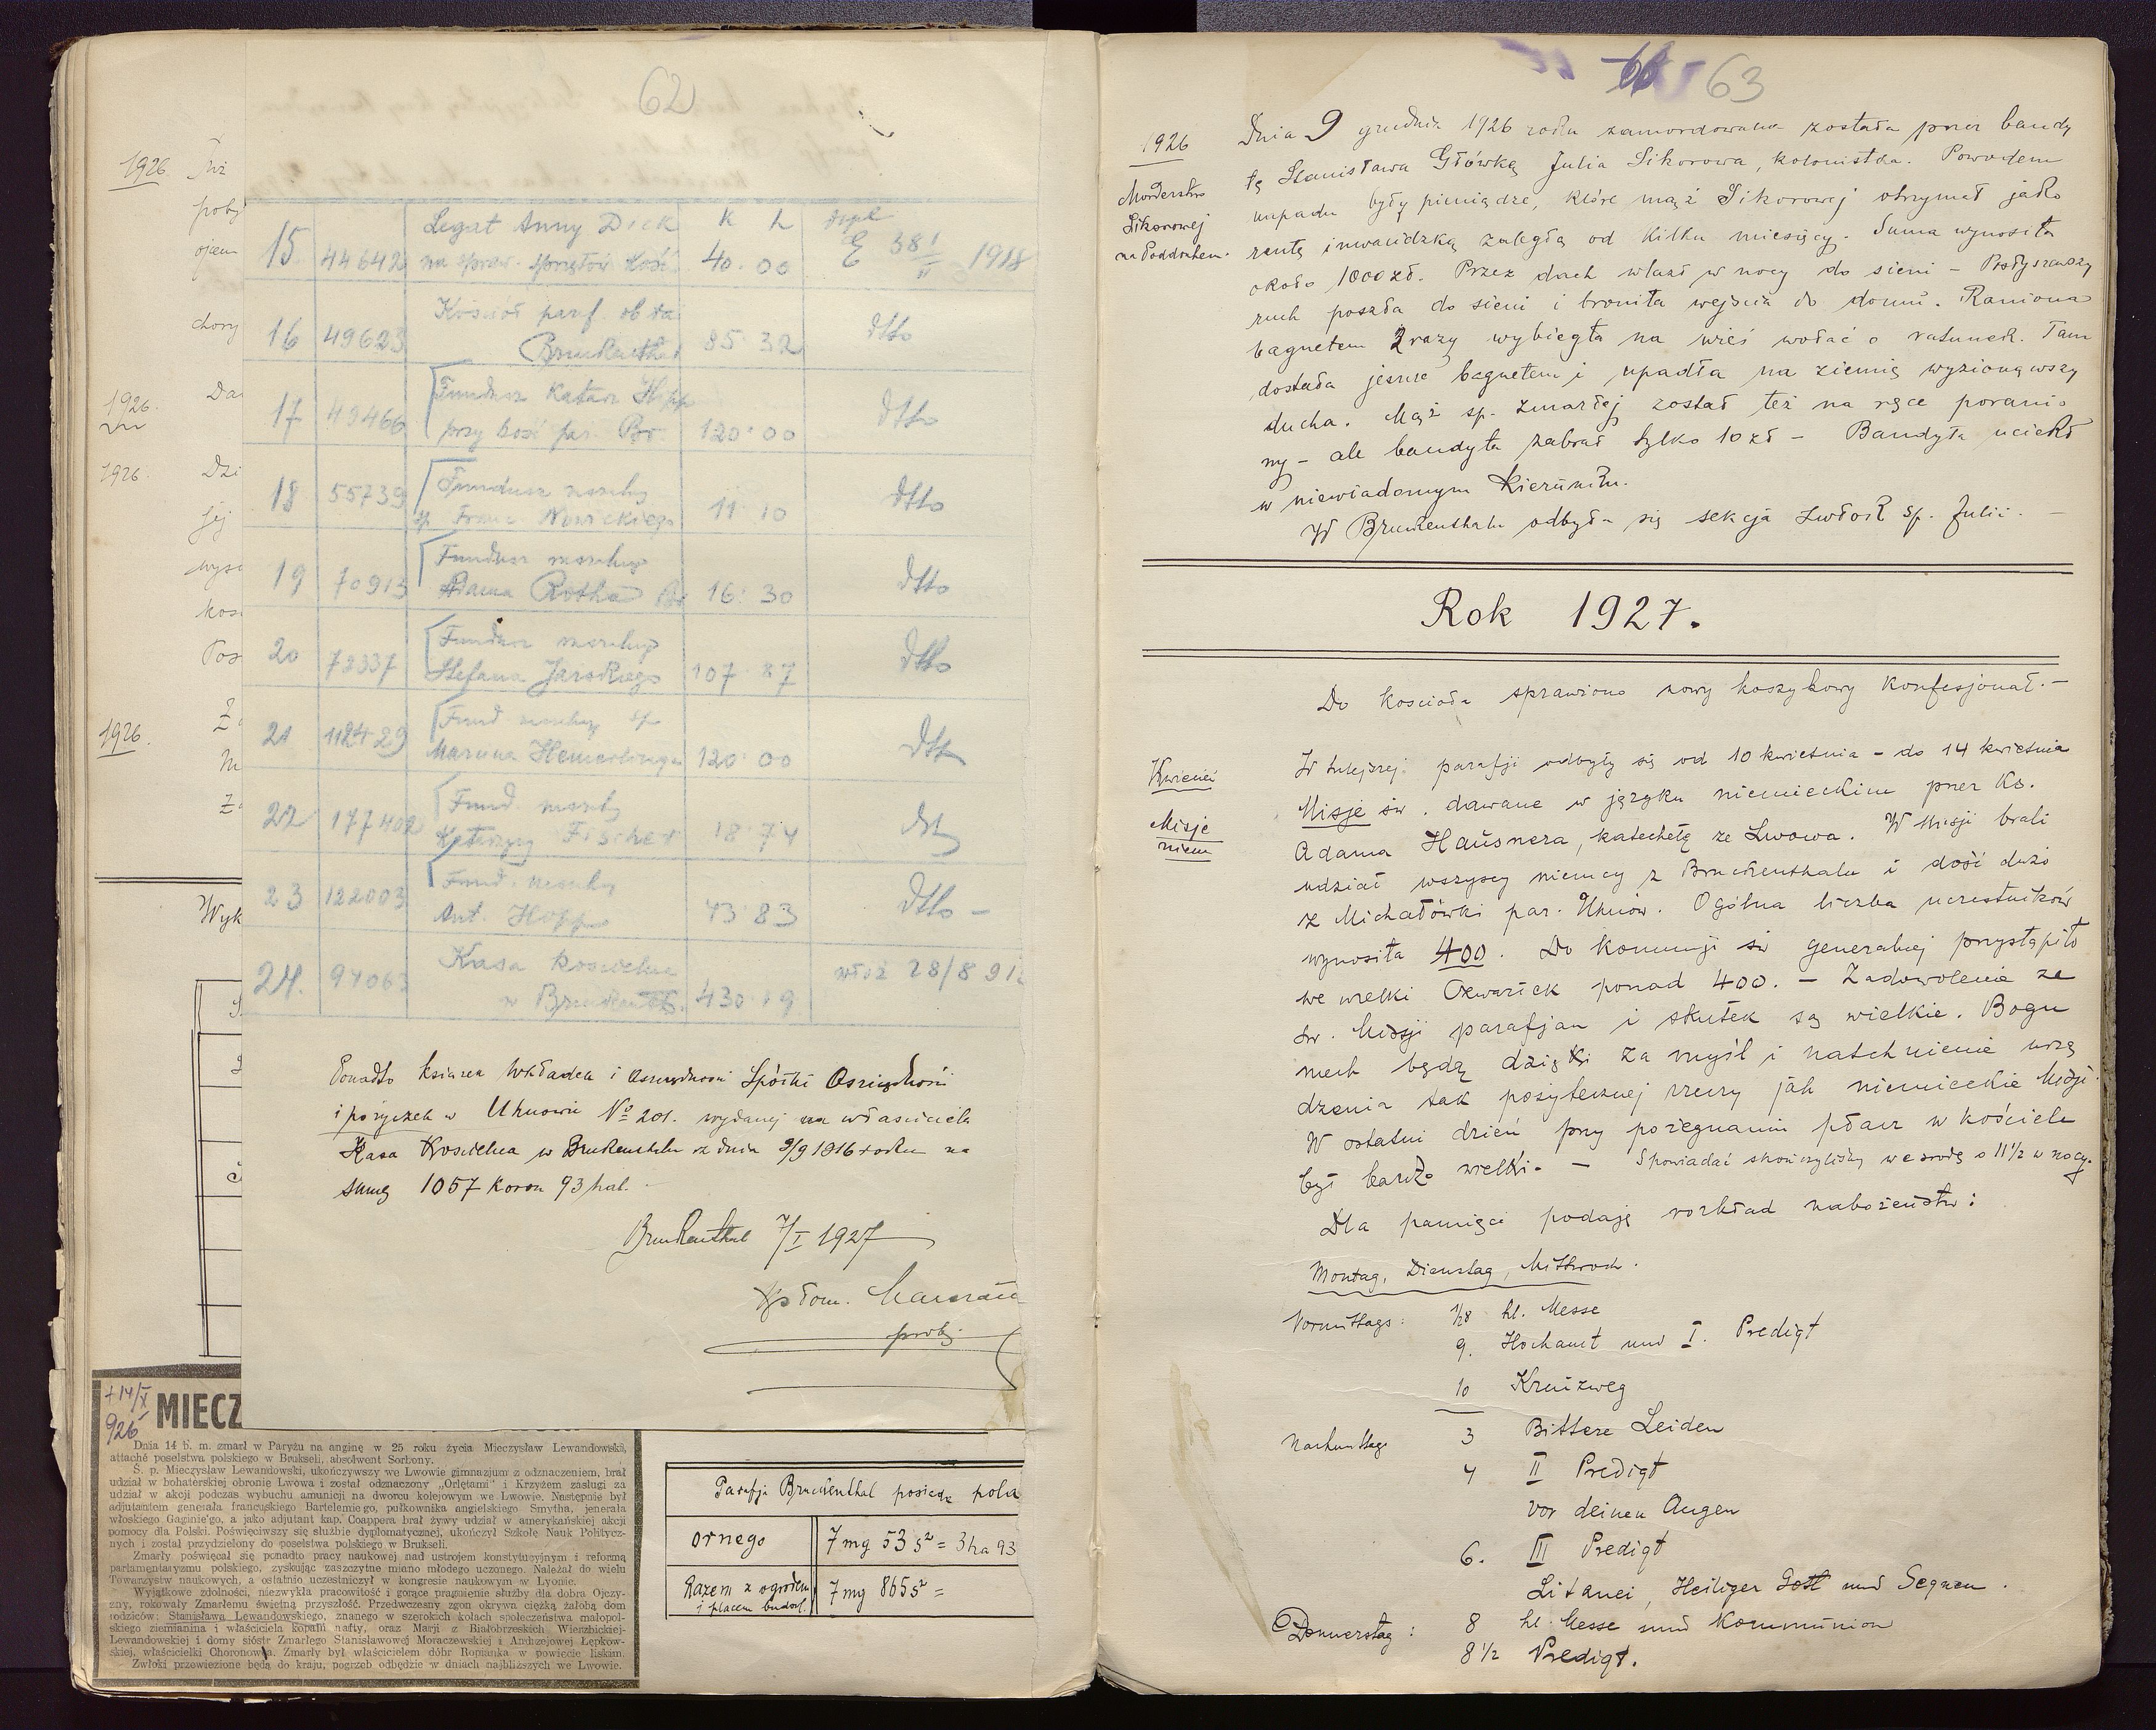 62
1926.
Już
poby
ojem
chory
1926.
Da
1926.
Dzi
Jej
wyso
kos
Pos
1926.
Wyk
15. 446492 Legat Anny Dick na spraw. sprzętów kość. 40.00 E 381/II 1918
16 49623 Kościół paraf. ob. ła. Bruckenthal 85.32 dtto
17 49466 Fundusz Katarz Hopp przy kość par. Br. 120.00 dtto
18 55739 Fundusz mszalny Franc. Nowickiego 11.10 dtto
19 70913 Fundusz mszalny Adama Rotha Br 16.30 dtto
20 78337 Fundusz mszalny Stefana Jarockiego 107.87 dtto
21 112429 Fund mszalny sp Marcina Hemerlinga 120.00 dtto
22 177402 Fund. mszalny Katarzyny Fischer 18.74 dtto
23 122003 Fund. mszalny Ant. Hoppa 43.83 dtto –
24. 94063 Kasa kościelna w Bruckenthalu. 430.19 28/8 91
Ponadto książka Wkładek i oszczędności Spółki Oszczędności
i pożyczek w Uhnowie No 201. wydanej na właściciela
Kasa Kościelna w Bruckenthalu z dnia 9/9 1916 roku na
sumę 1057 Koron 93 hal. –
Bruckenthal 7/I 1927
prob.
+14/X
926
MIECZ
Dnia 14 b. m. zmarł w Paryżu na anginę w 25 roku życia Mieczysław Lewandowski,
attaché poselstwa polskiego w Brukseli, absolwent Sorbony.
Ś. p. Mieczysław Lewandowski, ukończywszy we Lwowie gimnazjum z odznaczeniem, brał
udział w bohaterskiej obronie Lwowa i został odznaczony „Orlętami" i Krzyżem zasługi za
udział w akcji podczas wybuchu amunicji na dworcu kolejowym we Lwowie. Następnie był
adjutantem generała francuskiego Bartelemiego, pułkownika angielskiego Smytha, jenerała
włoskiego Gaginie'go, a jako adjutant kap. Coappera brał żywy udział w amerykańskiej akcji
pomocy dla Polski. Poświęciwszy się służbie dyplomatycznej, ukończył Szkołę Nauk Politycz-
nych i został przydzielony do poselstwa polskiego w Brukseli.
Zmarły poświęcał się ponadto pracy naukowej nad ustrojem konstytucyjnym i reformą
parlamentaryzmu polskiego, zyskując zaszczytne miano młodego uczonego. Należał do wielu
Towarzystw naukowych, a ostatnio uczestniczył w kongresie naukowym w Lyonie.
Wyjątkowe zdolności, niezwykła pracowitość i gorące pragnienie służby dla dobra Ojczy-
zny, rokowały Zmarłemu świetną przyszłość. Przedwczesny zgon okrywa ciężką żałobą dom
rodziców: Stanisława Lewandowskiego, znanego w szerokich kołach społeczeństwa małopol-
skiego ziemianina i właściciela kopalń nafty, oraz Marji z Białobrzeskich Wierzbickiej-
Lewandowskiej i domy sióstr Zmarłego Stanisławowej Moraczewskiej i Andrzejowej Łępkow-
skiej, właścicielki Choronowa. Zmarły był właścicielem dóbr Ropianka w powiecie liskim.
Zwłoki przewiezione będą do kraju, pogrzeb odbędzie w dniach najbliższych we Lwowie.
Parafja Bruckenthal posiada pola
ornego 7 mg 53 s² = 3 ha 93
Razem z ogrodem i placem budowl. 7 mg 865 s² =
63
1926
Morderstwo
Sikorowej
na Poddrubem.
Dnia 9 grudnia 1926 roku zamordowana została przez bandy
tę Stanisława Główkę Julia Sikorowa, kolonistka. Powodem
napadu były pieniądze, które mąż Sikorowej otrzymał jako
rentę inwalidzką zaległą od kilku miesięcy. Suma wynosiła
około 1000 zł. Przez dach wlazł w nocy do sieni – Posłyszawszy
ruch poszła do sieni i broniła wejścia do domu. Raniona
bagnetem 2 razy wybiegła na wieś wołać o ratunek. Tam
dostała jeszcze bagnetem i upadła na ziemię wyzionąwszy
ducha. Mąż sp. zmarłej został też na ręce poranio
ny – ale bandyta zabrał tylko 10 zł – Bandyta uciekł
w niewiadomym kierunku.
W Bruckenthalu odbyła się sekcja zwłok sp. Julii. –
Rok 1927.
Do kościoła sprawiono nowy koszykowy konfesjonał. –
Kwiecień
Misje
niem
W tutejszej parafji odbyły się od 10 kwietnia – do 14 kwietnia
Misje św. dawane w języku niemieckim przez Ks.
Adama Hausnera, katechetę ze Lwowa. W Misji brali
udział wszyscy niemcy z Bruckenthalu i dość dużo
z Michałówki par. Uhnów. Ogólna liczba uczestników
wynosiła 400. Do komunji św generalnej przystąpiło
we wielki Czwartek ponad 400. – Zadowolenie ze
św. Misji parafjan i skutek są wielkie. Bogu
niech będą dzięki za myśl i natchnienie urzą
dzenia tak pożytecznej rzeczy jak niemieckie Misje.
W ostatni dzień przy pożegnaniu płacz w kościele
był bardzo wielki. – Spowiadać skończyliśmy we środę o 11½ w nocy.
Dla pamięci podaję rozkład nabożeństw:
Montag, Dienstag, Mittwoch.
Vormittags: ½8 hl. Messe
9. Hochamt und I. Predigt
10 Kreuzweg
Nachmittags 3 Bittere Leiden
4 II Predigt
vor deinen Augen
6. III Predigt
Litanei, Heiliger Gott und Segnen.
Donnerstag: 8 hl. Messe und Kommunion
8½ Predigt.